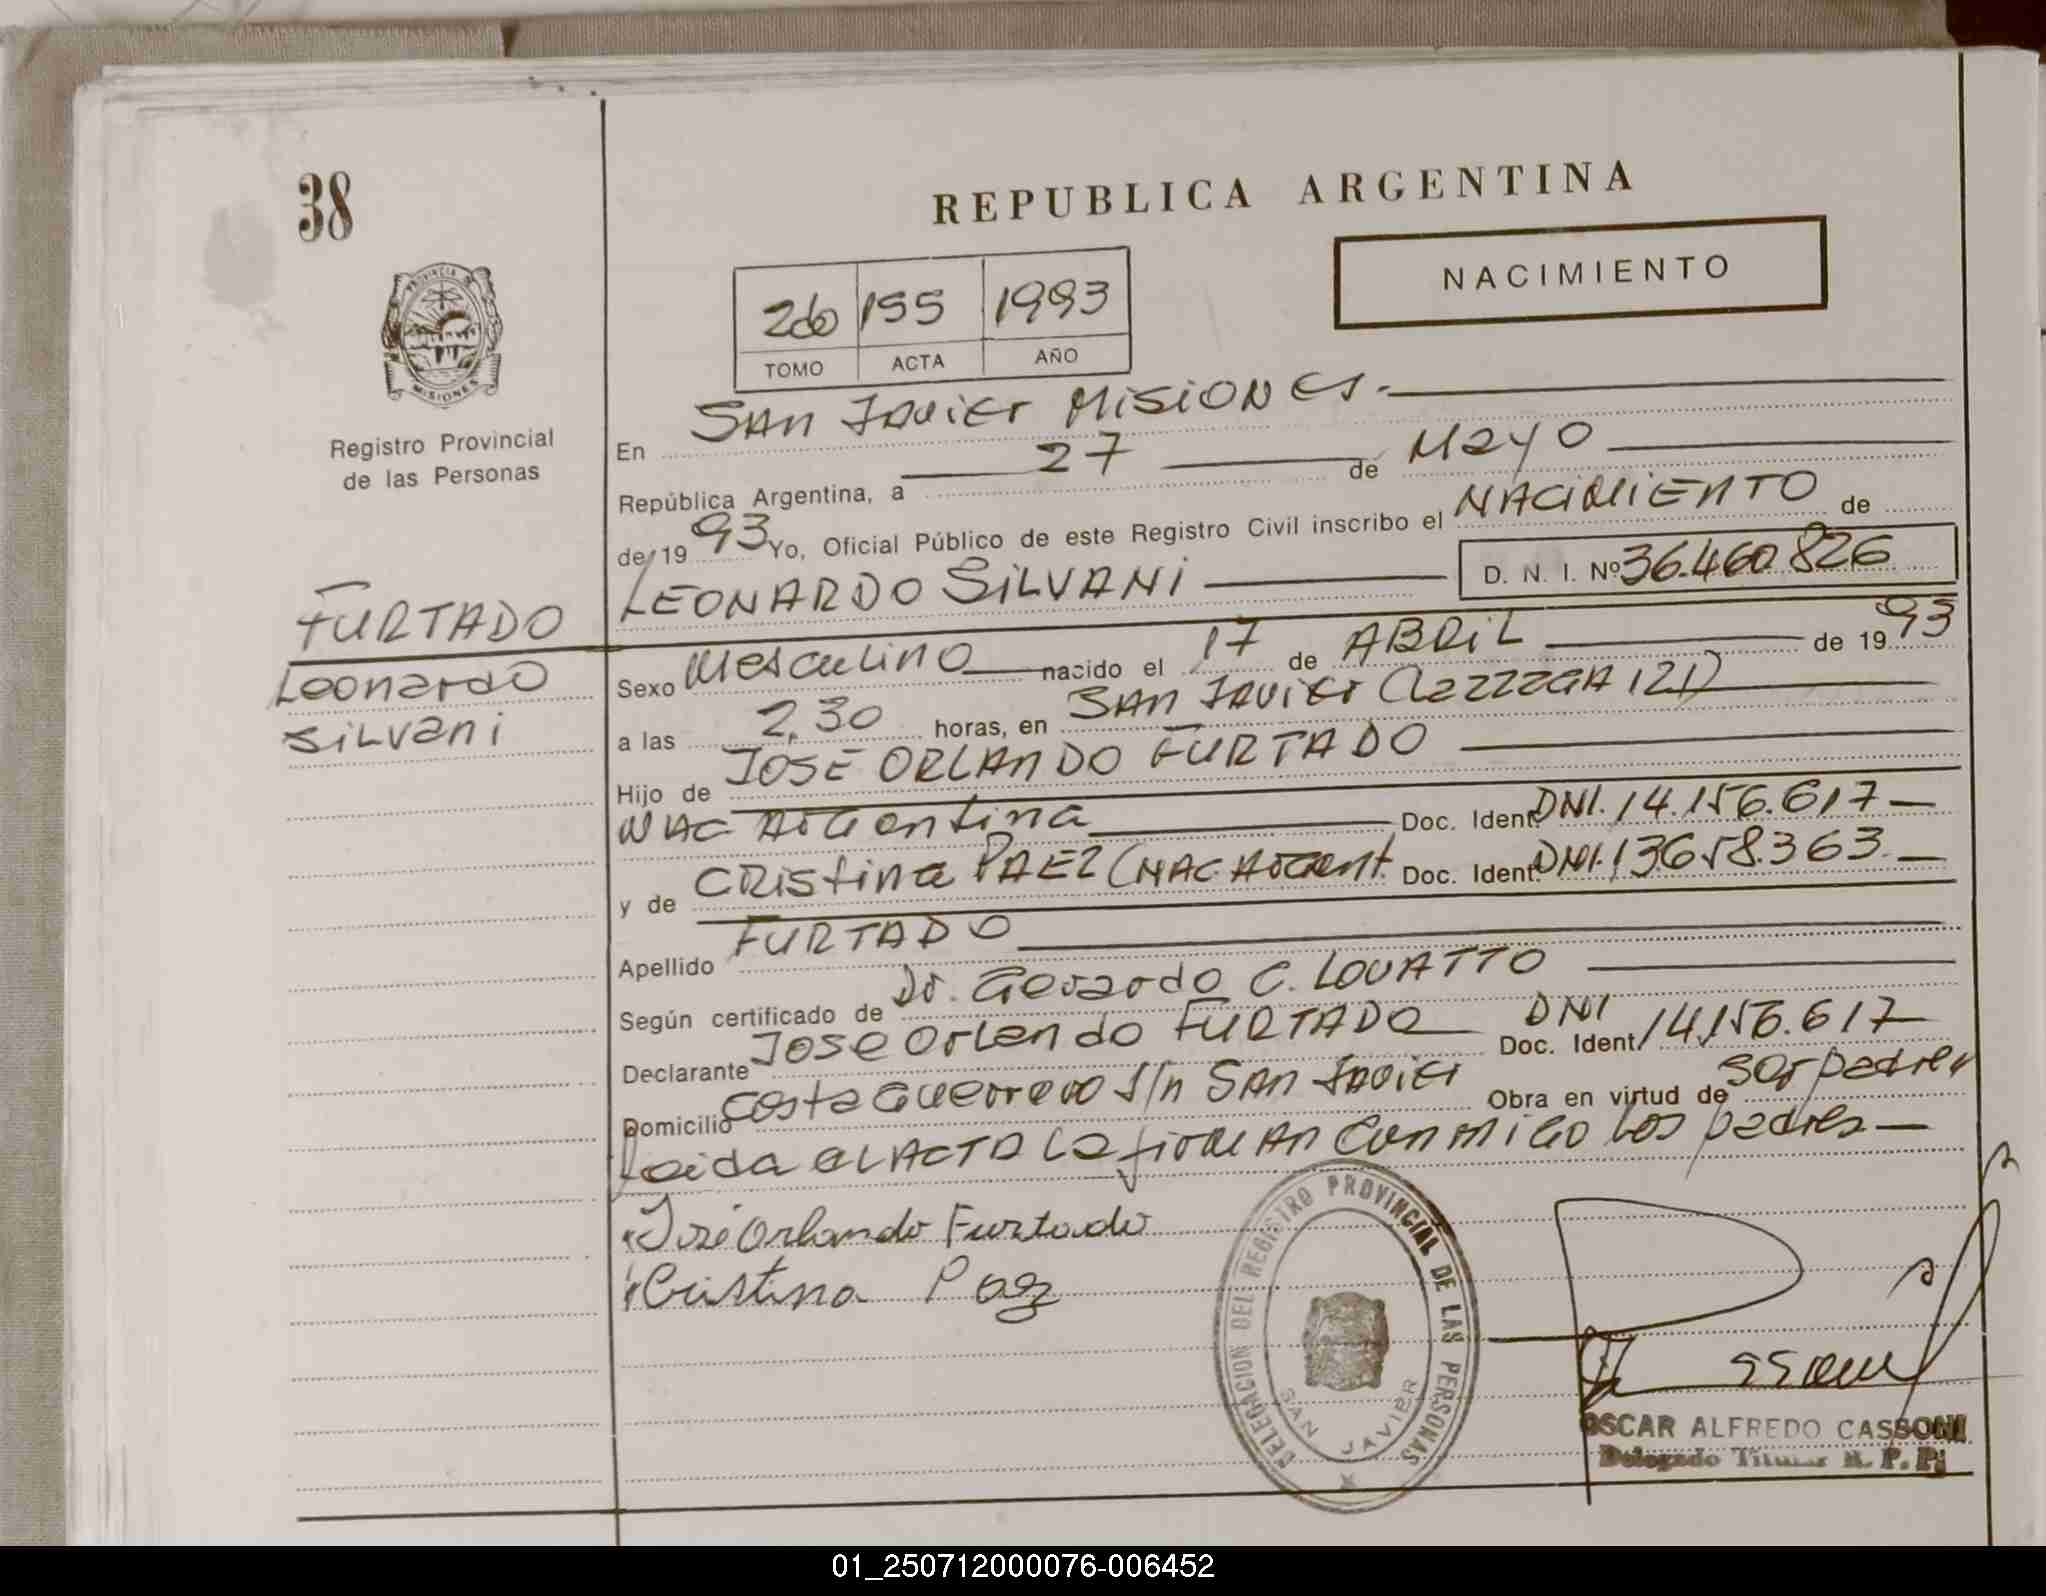 38
REPUBLICA ARGENTINA
NACIMIENTO
2do 155 1993
TOMO ACTA AÑO
PROVINCIA DE MISIONES
Registro Provincial
de las Personas
En SAN JAVIER MISIONES.-
República Argentina, a 27 de Mayo
de 19 93 Yo, Oficial Público de este Registro Civil inscribo el NACIMIENTO de
LEONARDO SILVANI D. N. I. Nº 36.460.826
FURTADO
Leonardo
Silvani
Sexo Masculino nacido el 17 de ABRIL de 19 93
a las 2,30 horas, en SAN JAVIER
Hijo de JOSE ORLANDO FURTADO
NAC Argentina Doc. Ident. DNI. 14.156.617-
y de CRistina PAEZ (NAC. Argent. Doc. Ident. DNI. 13658.363.-
Apellido FURTADO
Según certificado de Dr. Gerardo C. LOVATTO
Declarante Jose Orlando FURTADO DNI Doc. Ident. 14.156.617
Domicilio Costa Guerrero s/n SAN Javier Obra en virtud de ser padres
Leida el ACTA La firman conmigo los padres-
José Orlando Furtado
Cristina Paez
DELEGACION DEL REGISTRO PROVINCIAL DE LAS PERSONAS
SAN JAVIER
OSCAR ALFREDO CASSONI
Delegado Titular R. P. P.
01_250712000076-006452